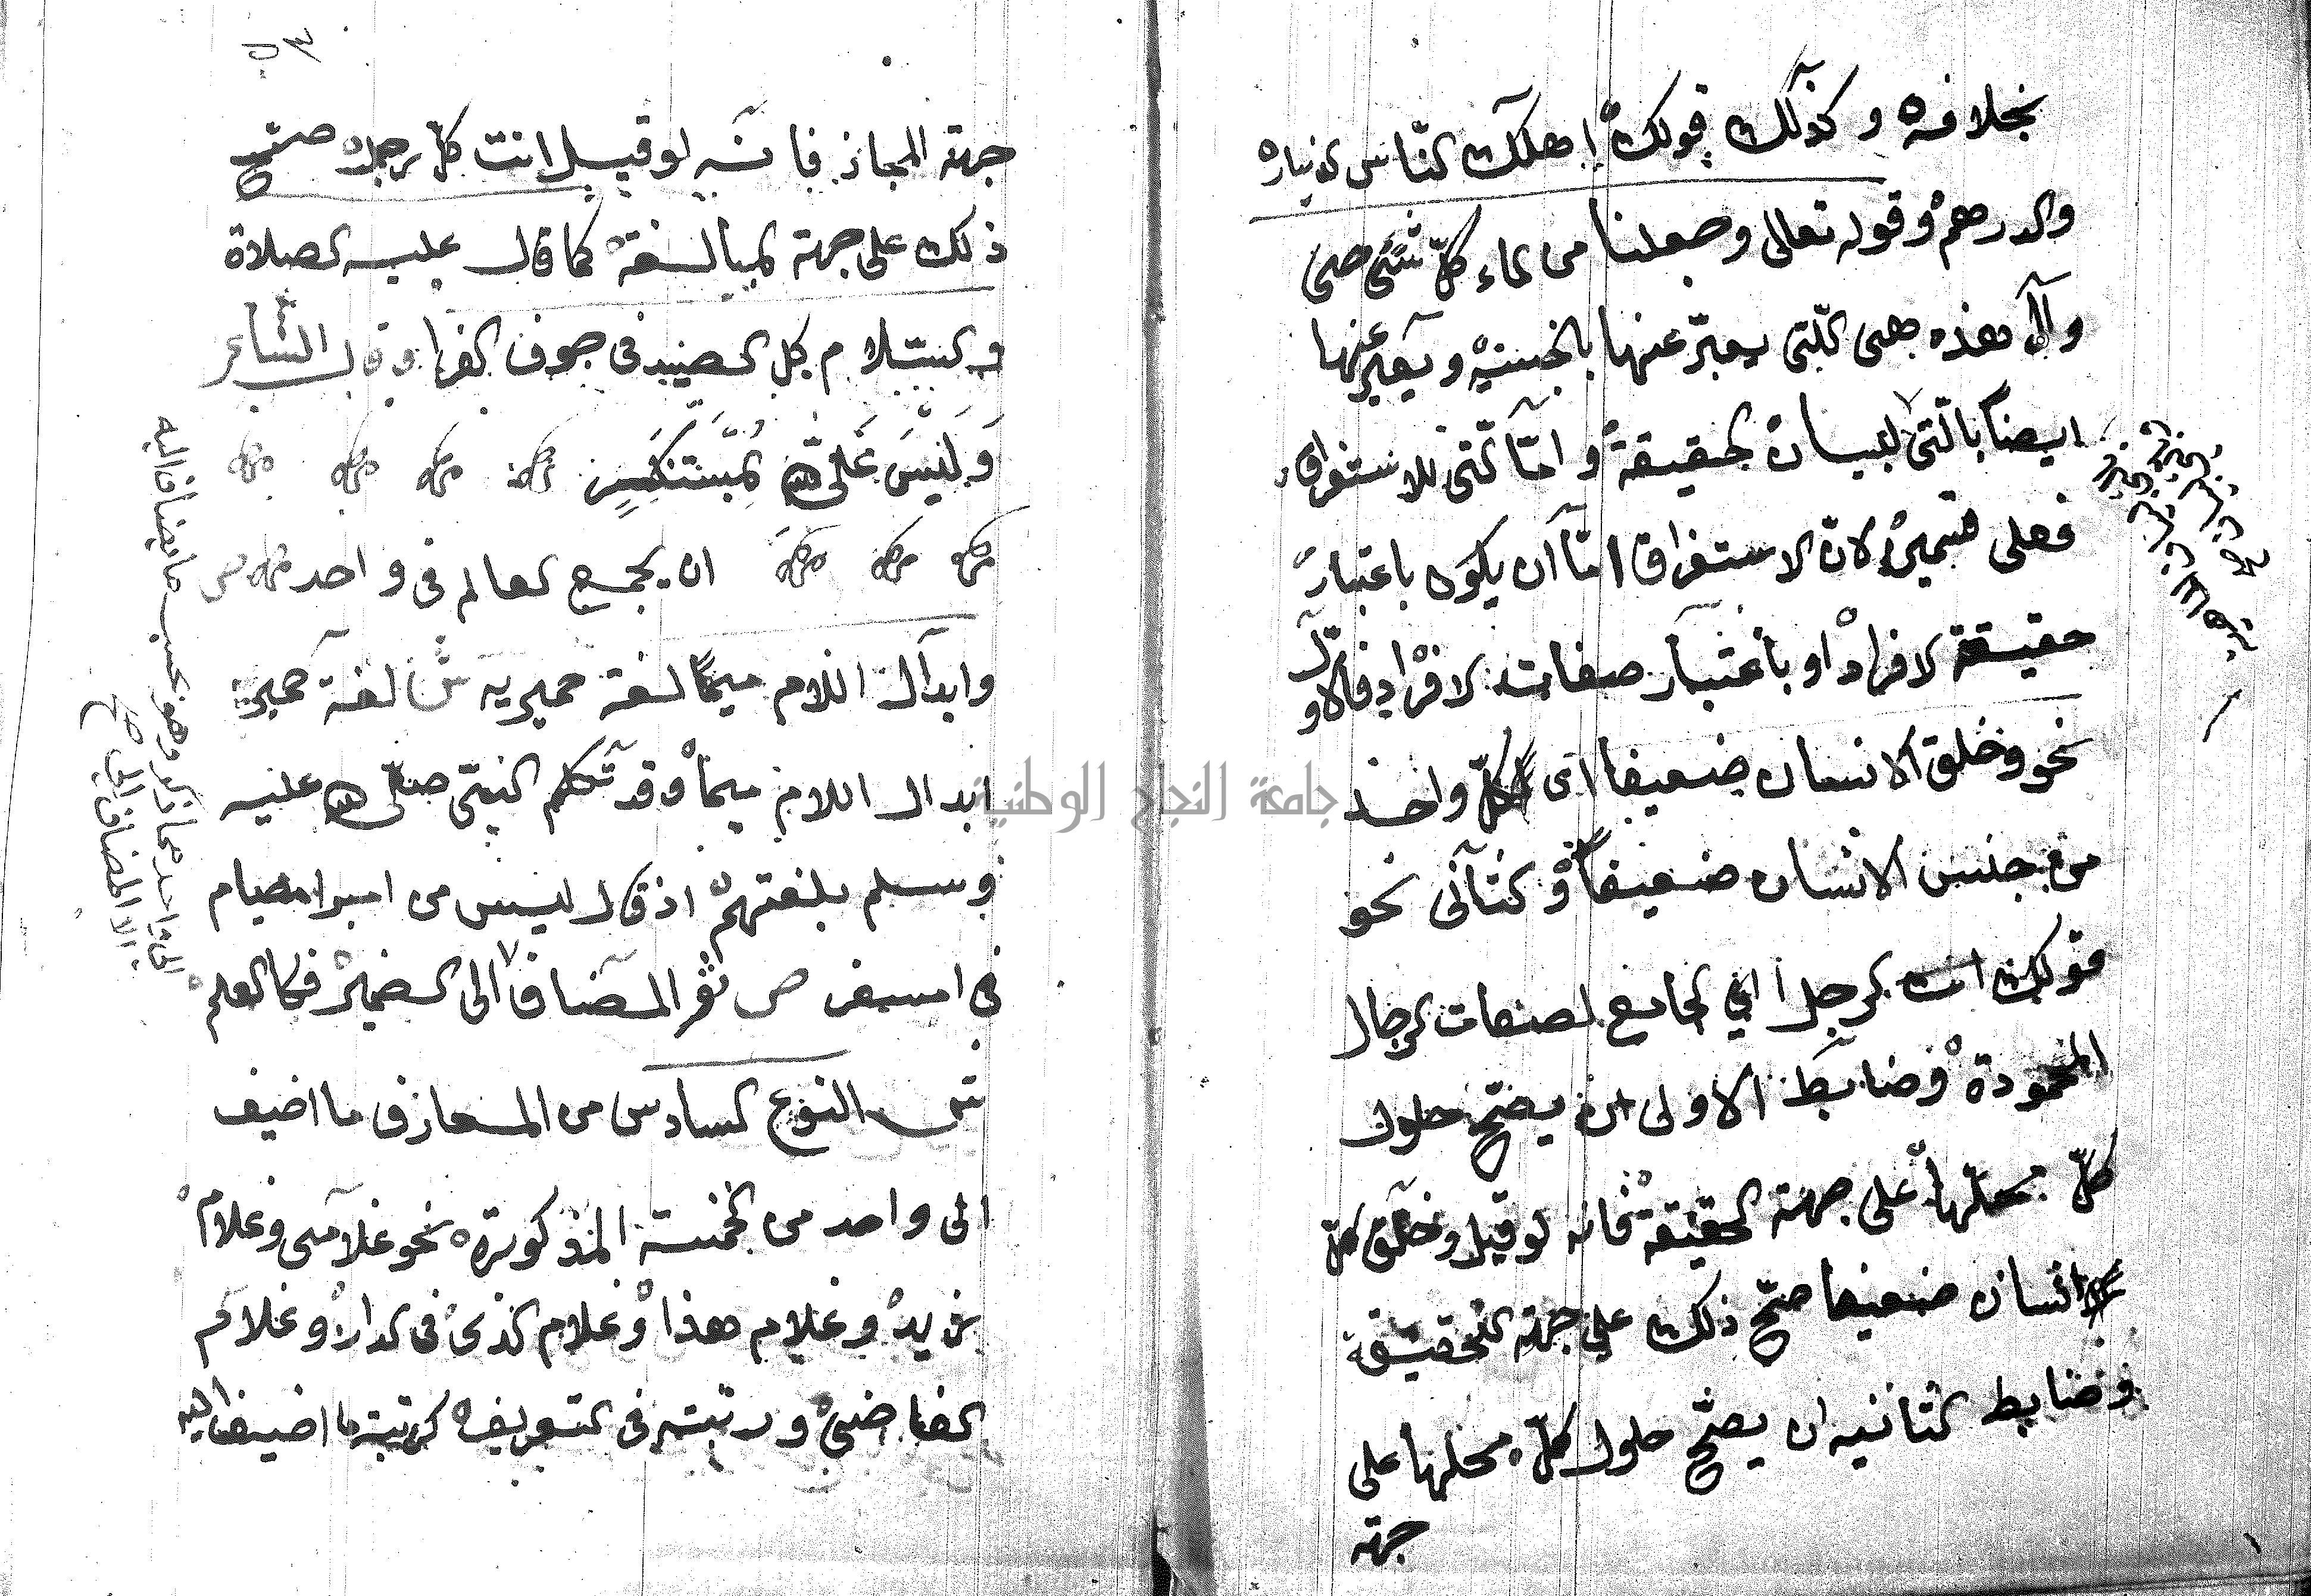 بخلافه وكذلك قولك اهلك الناس الدينار
والدرهم وقوله تعالى وجعلنا من الماء كل شئ حي
وال هذه هي التي يعبر عنها بالجنسية ويعبر عنها
ايضا بالتي لبيان الحقيقة واما التي للاستغراق
فعلى قسمين لان الاستغراق اما ان يكون باعتبار
حقيقة الافراد او باعتبار صفات الافراد فالاول
نحو وخلق الانسان ضعيفا اى كل واحد
من جنس الانسان ضعيفا والثاني نحو
قولك انت الرجل اي الجامع لصفات الرجال
المحمودة وضابط الاولى ان يصح حلول
كل محلها على جهة الحقيقة فانه لو قيل وخلق كل
انسان ضعيفا صح ذلك على جهة الحقيقة
وضابط الثانيه ان يصح حلول كل محلها على
جهة
جهة المجاز فانه لو قيل انت كل رجل صح
ذلك على جهة المبالغة كما قال عليه الصلاة
والسلام كل الصيد في جوف الفرا وقال الشاعر
وَلَيْسَ عَلَى الله بمُسْتَنْكَرٍ
ان يجمع العالم في واحد ص
وابدال اللام ميما لغة حميرية ش لغة حمير
ابدال اللام ميما وقد تكلم النبي صلى الله عليه
وسلم بلغتهم اذ قال ليس من امبر امصيام
في امسفر ص ثم المضاف الى الضمير فكالعلم
ش النوع السادس من المعارف ما اضيف
الى واحد من الخمسة المذكورة نحو غلامى وغلام
زيد وغلام هذا وغلام الذى في الدار وغلام
القاضي ورتبته في التعريف كرتبة ما اضيف اليه
ص والمضاف الى واحد مما ذكر وهو بحسب ما يضاف اليه
الا المضاف الى
جامعة النجاح الوطنية